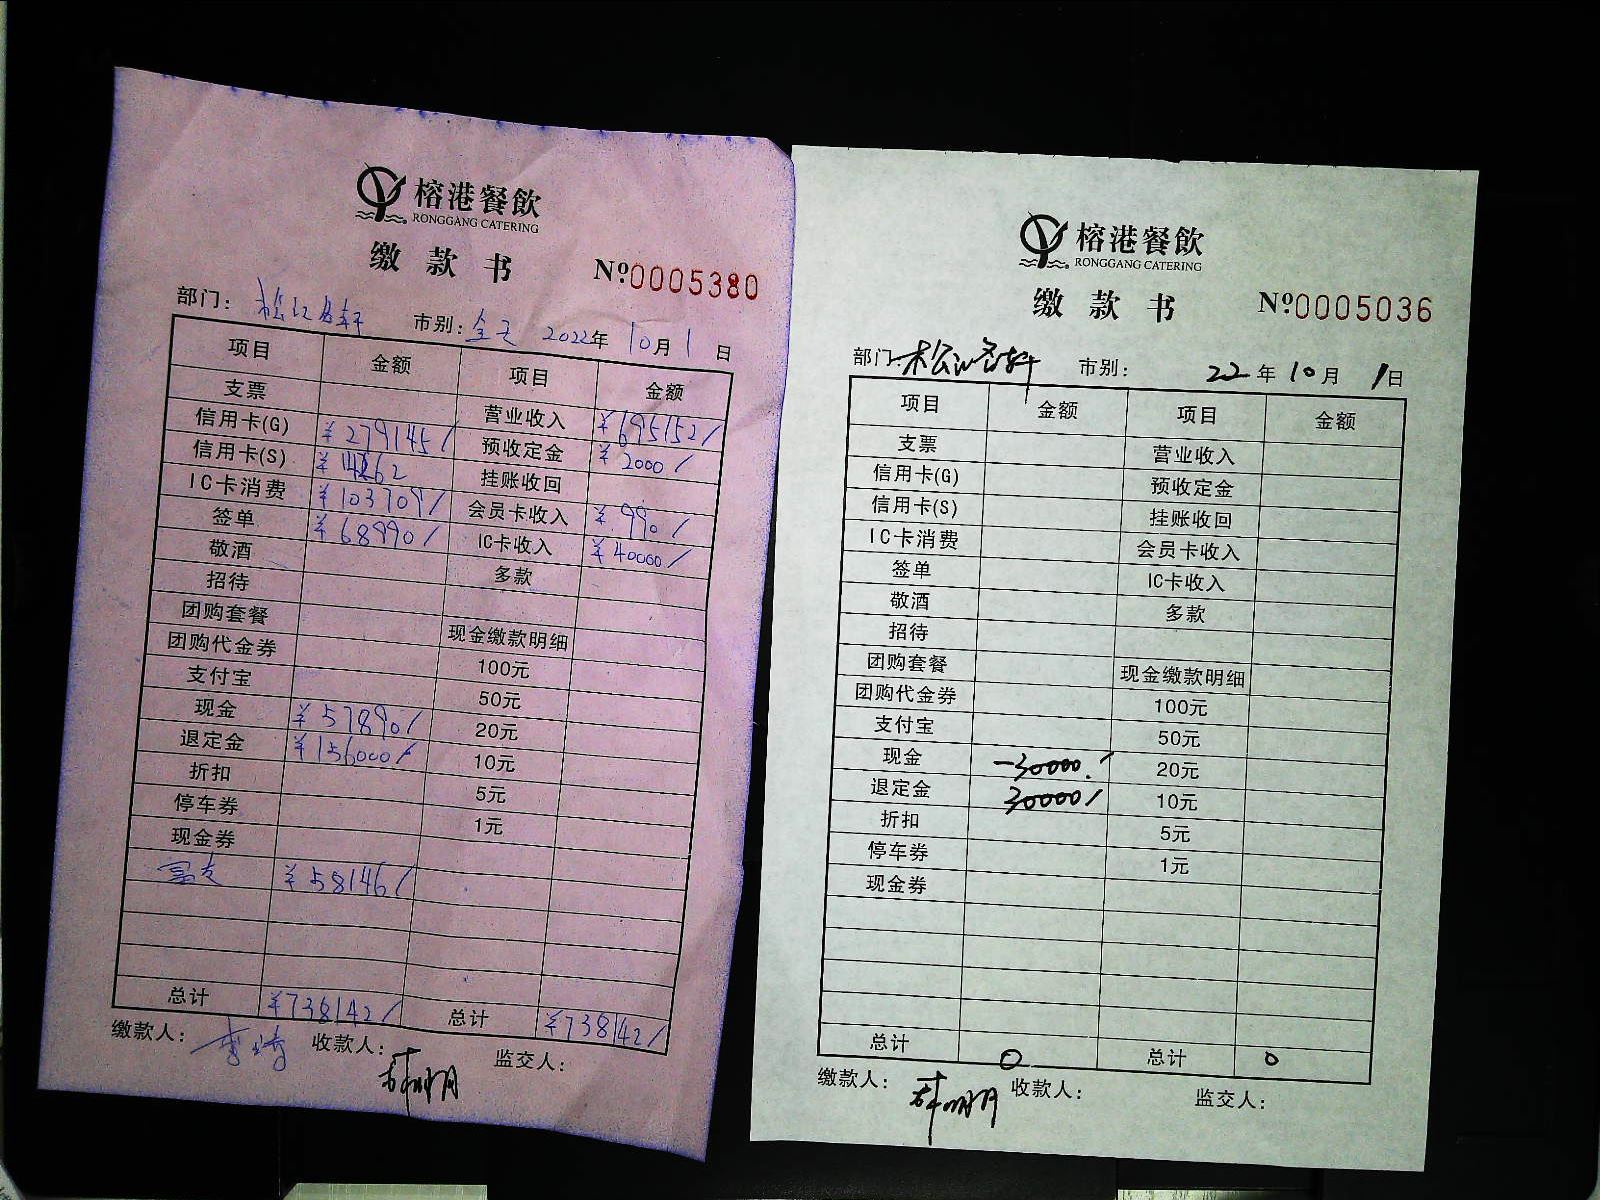 榕港餐飲
RONGGANG CATERING
缴款书 №0005380
部门：松江名轩 市别：全天 2022年10月1日
项目 金额 项目 金额
支票 营业收入 ¥695152/
信用卡(G) ¥279145/ 预收定金 ¥2000/
信用卡(S) ¥14262 挂账收回
IC卡消费 ¥103709/ 会员卡收入 ¥990/
签单 ¥68990/ IC卡收入 ¥40000/
敬酒 多款
招待
团购套餐 现金缴款明细
团购代金券 100元
支付宝 50元
现金 ¥57890/ 20元
退定金 ¥156000/ 10元
折扣 5元
停车券 1元
现金券
¥58146/
总计 ¥738142/ 总计 ¥738142/
缴款人： 收款人： 监交人：
榕港餐飲
RONGGANG CATERING
缴款书 №0005036
部门：松江名轩 市别： 22年10月1日
项目 金额 项目 金额
支票 营业收入
信用卡(G) 预收定金
信用卡(S) 挂账收回
IC卡消费 会员卡收入
签单 IC卡收入
敬酒 多款
招待
团购套餐 现金缴款明细
团购代金券 100元
支付宝 50元
现金 -30000./ 20元
退定金 30000/ 10元
折扣 5元
停车券 1元
现金券
总计 0 总计 0
缴款人： 收款人： 监交人：